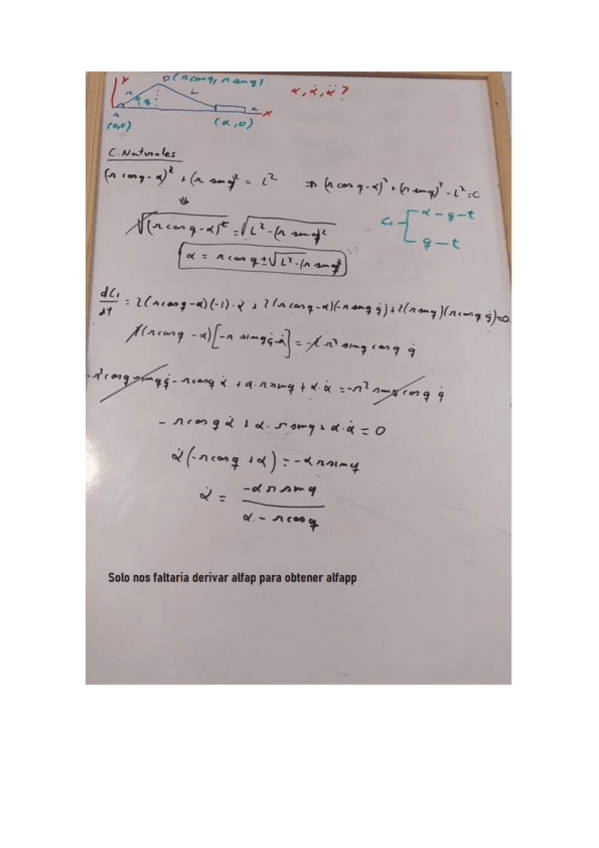 Y B (r cos q, r sen q) α, α̇, α̈ ?
r L
q
A C X
(0,0) (α, 0)
C. Naturales
(r cos q - α)² + (r sen q)² = L² ⇒ (r cos q - α)² + (r sen q)² - L² = 0
⇓
√(r cos q - α)² = √L² - (r sen q)² C₁ α - q - t
q - t
α = r cos q ± √L² - (r sen q)²
dC₁/dt = 2(r cos q - α)(-1)·α̇ + 2(r cos q - α)(-r sen q q̇) + 2(r sen q)(r cos q q̇) = 0
2(r cos q - α)[-r sen q q̇ - α̇] = -2 r² sen q cos q q̇
-r² cos q sen q q̇ - r cos q α̇ + α·r sen q + α·α̇ = -r² sen q cos q q̇
- r cos q α̇ + α·r sen q + α·α̇ = 0
α̇ (-r cos q + α) = -α r sen q
α̇ = -α r sen q / α - r cos q
Solo nos faltaria derivar alfap para obtener alfapp